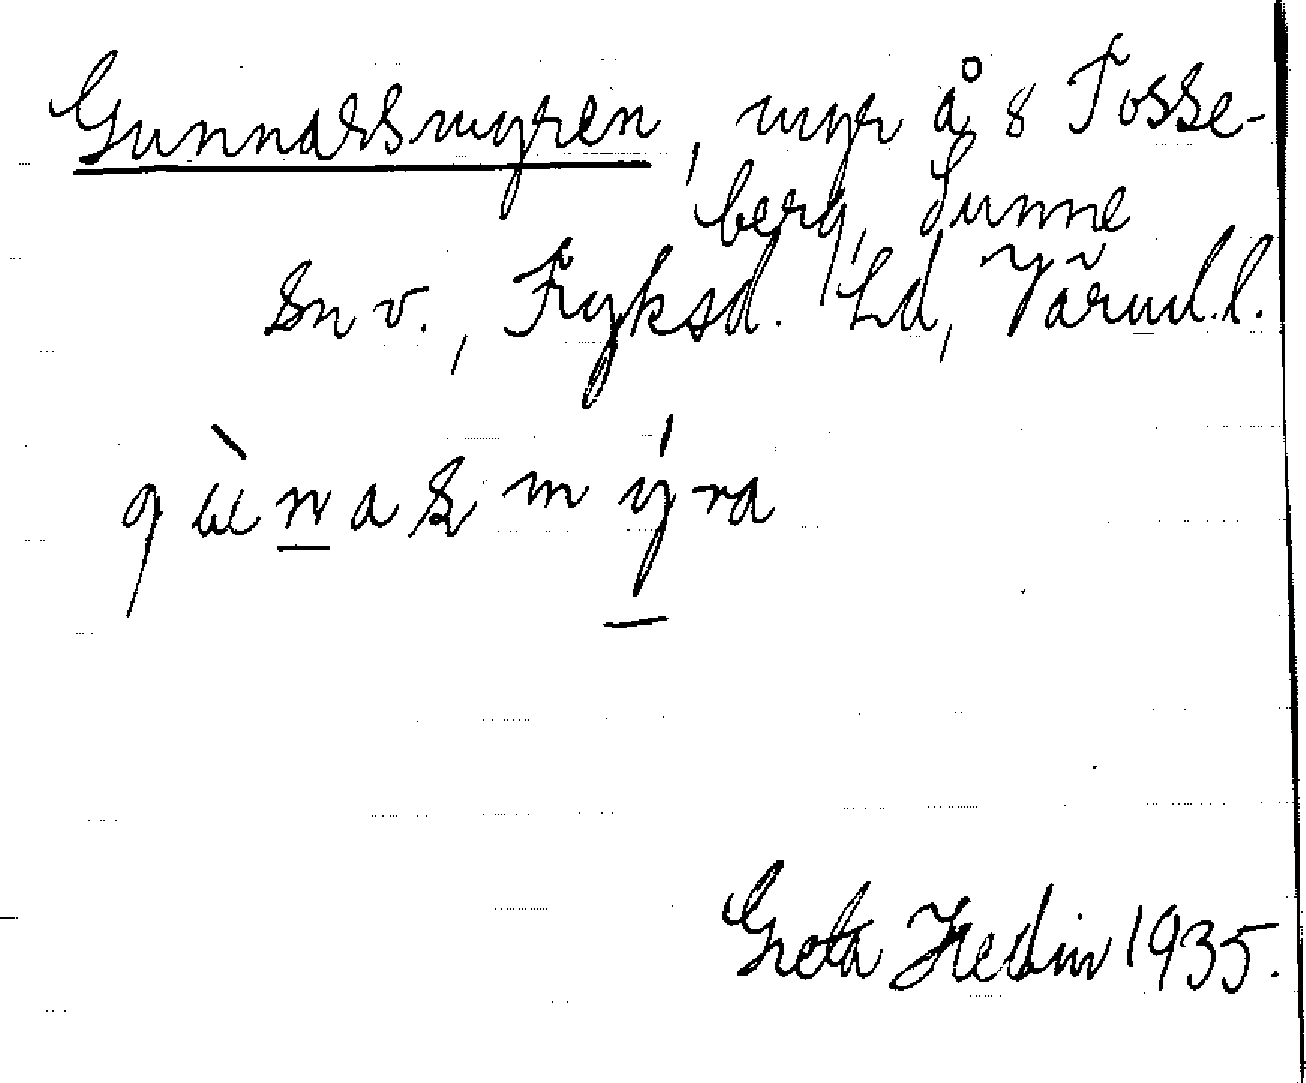 Gunnarsmyren, myr å s Tosse-
berg, Sunne
sn v., Fryksd. hd, Värml. l.
gùnasmýra
Greta Hedin 1935.